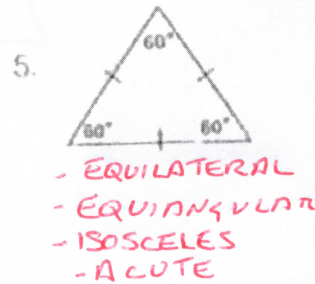 5.
60°
60° 60°
- EQUILATERAL
- EQUIANGULAR
- ISOSCELES
- ACUTE